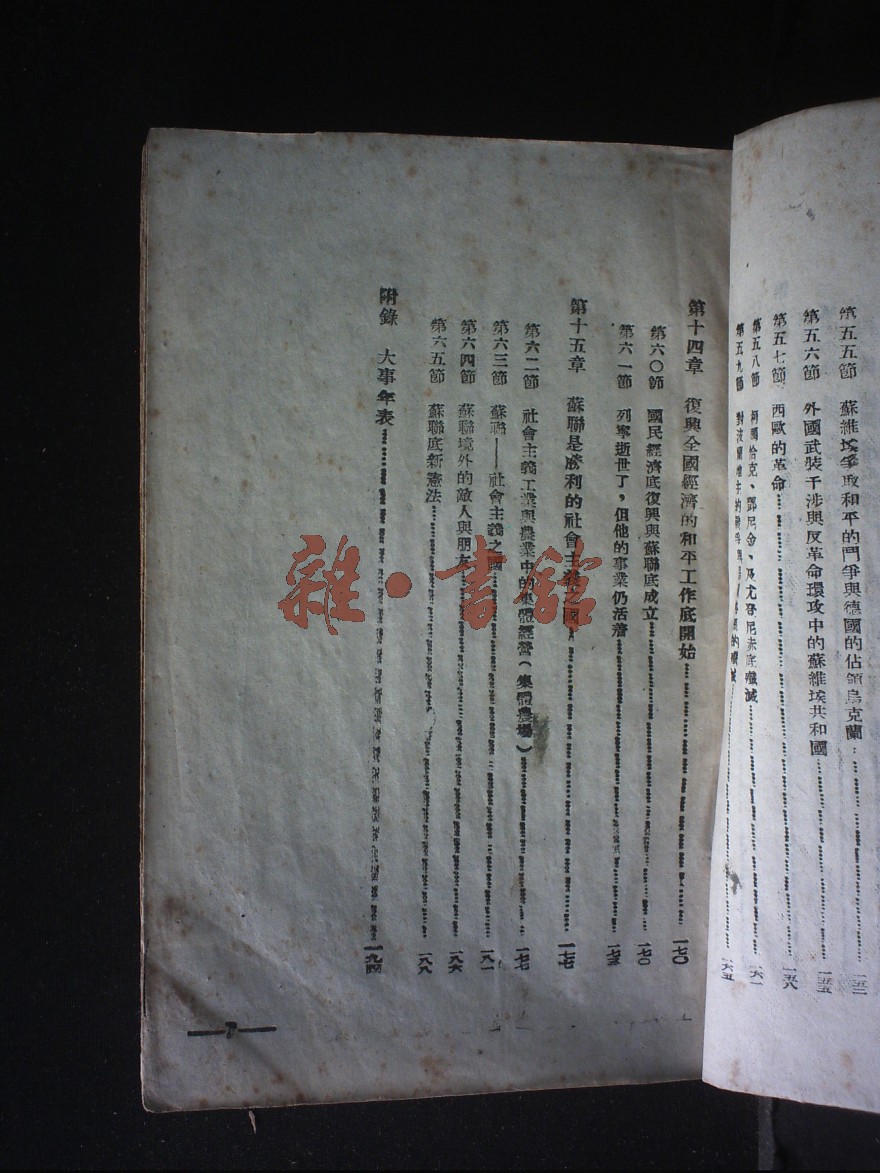 第五五節 蘇維埃爭取和平的鬥爭與德國的佔領烏克蘭 一五二
第五六節 外國武裝干涉與反革命環攻中的蘇維埃共和國 一五五
第五七節 西歐的革命 一五八
第五八節 柯爾恰克、鄧尼金、及尤登尼赤底殲滅 一六一
第五九節 對波蘭地主的戰爭 一六五
第十四章 復興全國經濟的和平工作底開始 一七〇
第六〇節 國民經濟底復興與蘇聯底成立 一七〇
第六一節 列寧逝世了，但他的事業仍活着 一七三
第十五章 蘇聯是勝利的社會主義之國 一七七
第六二節 社會主義工業與農業中的集體經營（集體農場） 一七七
第六三節 蘇聯——社會主義之國 一八一
第六四節 蘇聯境外的敵人與朋友 一八六
第六五節 蘇聯底新憲法 一八八
附錄 大事年表 一九四
7
雜·書館